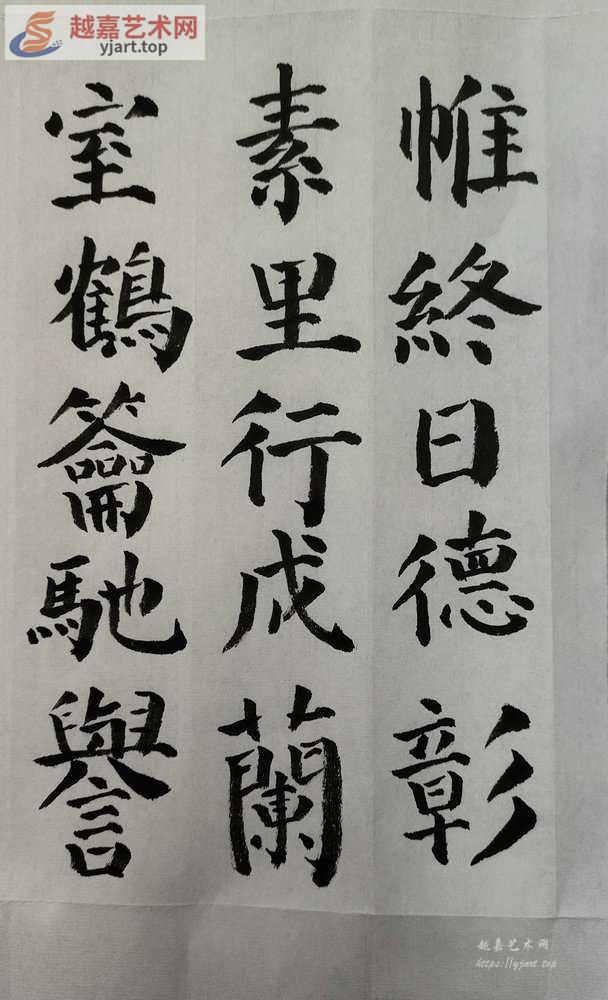 越嘉艺术网
yjart.top
帷終日德彰
素里行成蘭
室鶴籥馳譽
越嘉艺术网
https://yjart.top